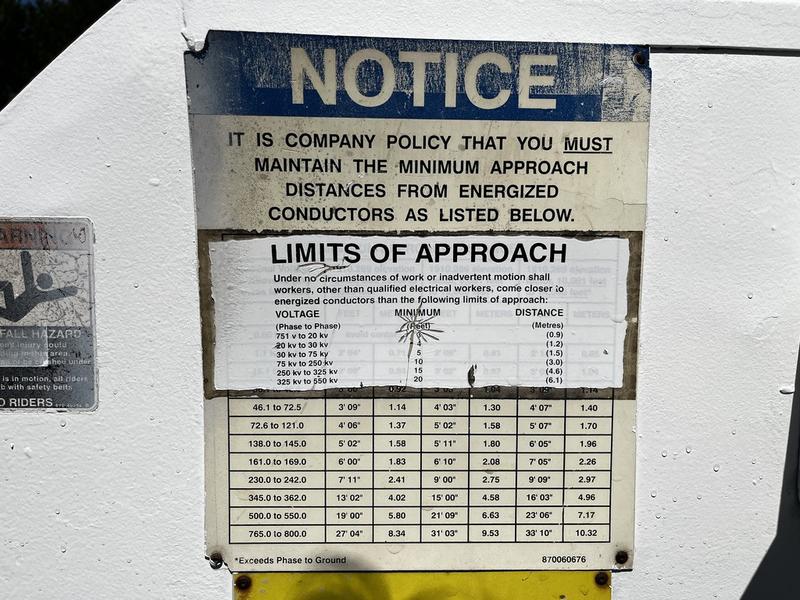 NOTICE
IT IS COMPANY POLICY THAT YOU MUST
MAINTAIN THE MINIMUM APPROACH
DISTANCES FROM ENERGIZED
CONDUCTORS AS LISTED BELOW.
LIMITS OF APPROACH
Under no circumstances of work or inadvertent motion shall
workers, other than qualified electrical workers, come closer to
energized conductors than the following limits of approach:
VOLTAGE MINIMUM DISTANCE
(Phase to Phase) (Feet) (Metres)
751 v to 20 kv (0.9)
20 kv to 30 kv (1.2)
30 kv to 75 kv 5 (1.5)
75 kv to 250 kv 10 (3.0)
250 kv to 325 kv 15 (4.6)
325 kv to 550 kv 20 (6.1)
46.1 to 72.5 3' 09" 1.14 4' 03" 1.30 4' 07" 1.40
72.6 to 121.0 4' 06" 1.37 5' 02" 1.58 5' 07" 1.70
138.0 to 145.0 5' 02" 1.58 5' 11" 1.80 6' 05" 1.96
161.0 to 169.0 6' 00" 1.83 6' 10" 2.08 7' 05" 2.26
230.0 to 242.0 7' 11" 2.41 9' 00" 2.75 9' 09" 2.97
345.0 to 362.0 13' 02" 4.02 15' 00" 4.58 16' 03" 4.96
500.0 to 550.0 19' 00" 5.80 21' 09" 6.63 23' 06" 7.17
765.0 to 800.0 27' 04" 8.34 31' 03" 9.53 33' 10" 10.32
*Exceeds Phase to Ground 870060676
FALL HAZARD
is in motion, all riders
with safety belts
RIDERS